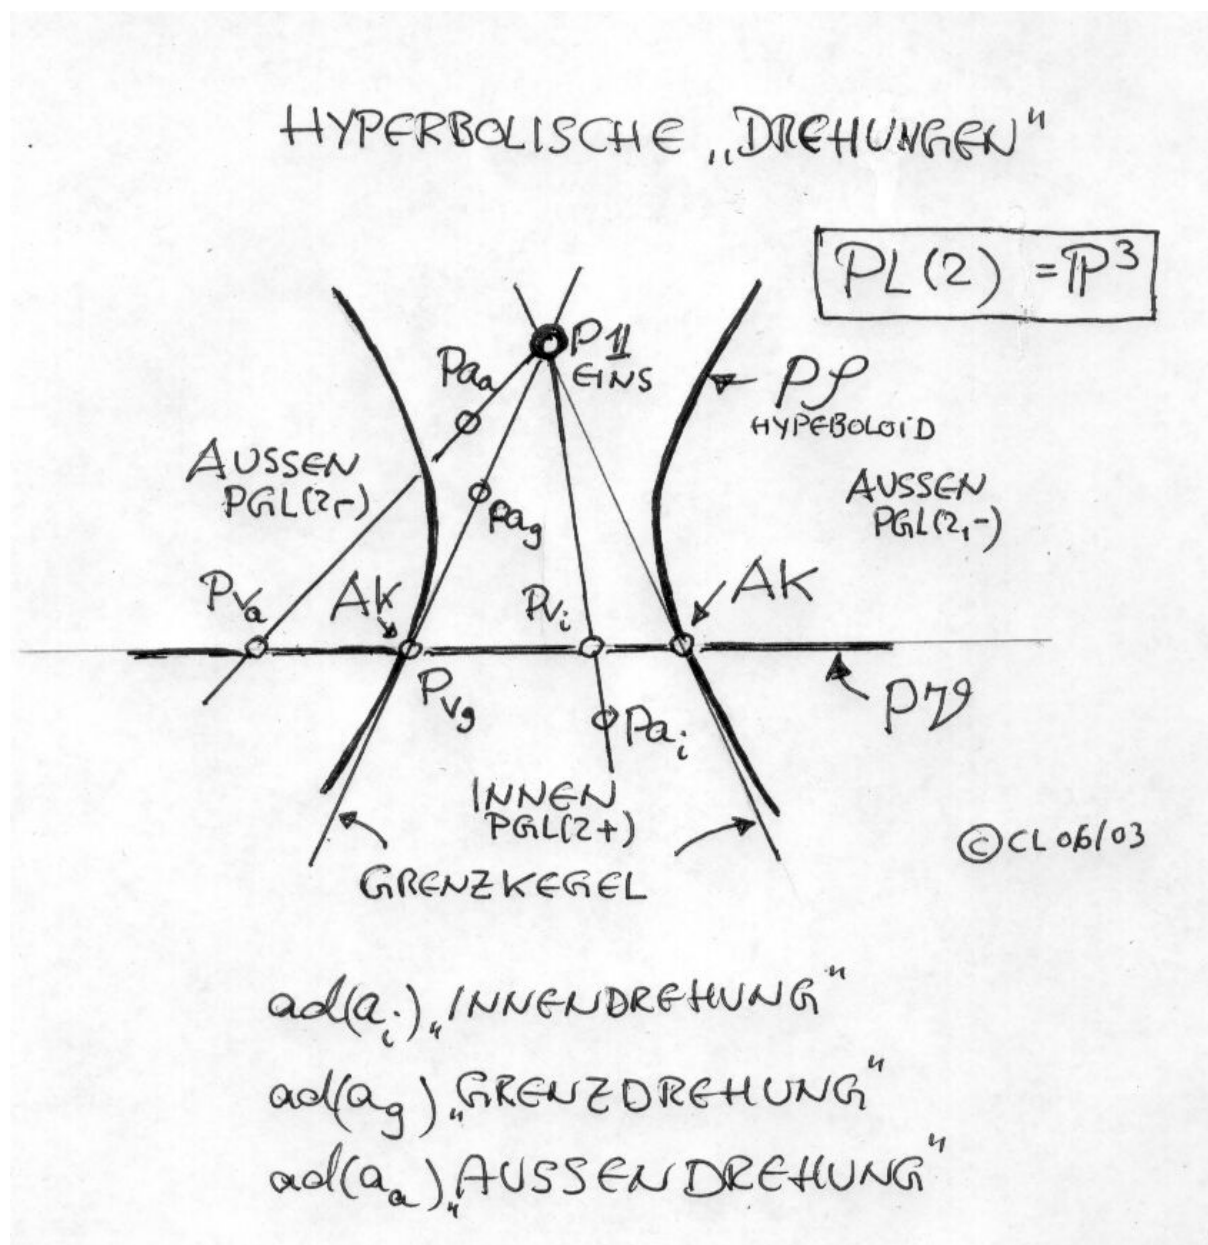 HYPERBOLISCHE „DREHUNGEN"
PL(2) = ℙ³
P𝟙
EINS
Pa_a
HYPEBOLOiD
AUSSEN
PGL(2,-)
AUSSEN
PGL(2,-)
Pa_g
Pv_a
AK
Pv_i
AK
Pv_g
Pa_i
INNEN
PGL(2+)
GRENZKEGEL
©CL 06/03
ad(a_i) „INNENDREHUNG"
ad(a_g) „GRENZDREHUNG"
ad(a_a) „AUSSENDREHUNG"